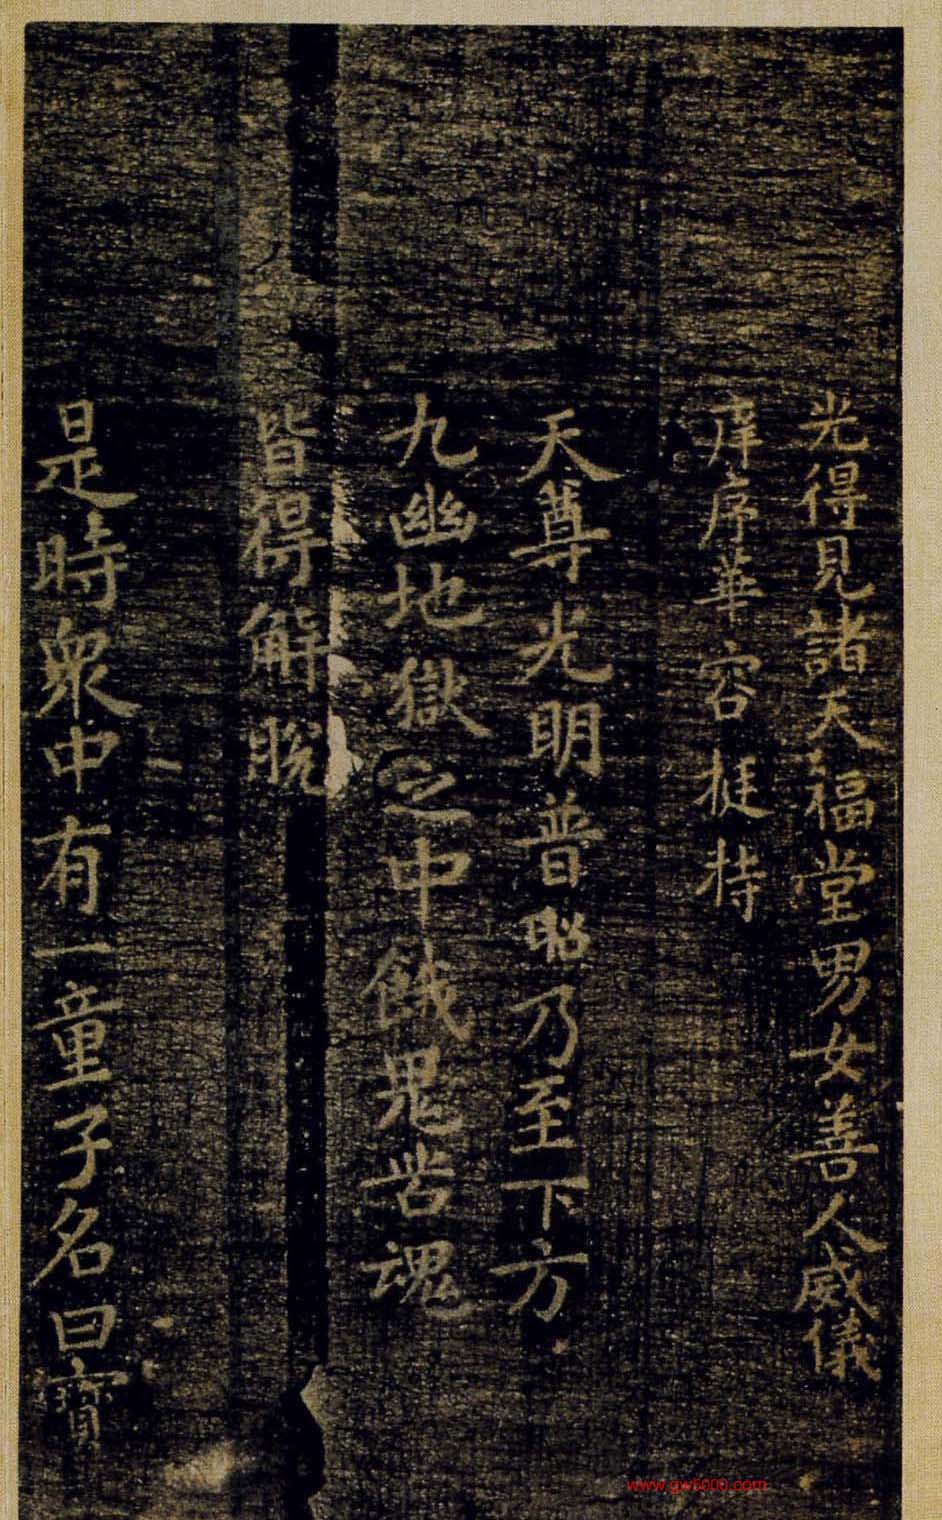 光得見諸天福堂男女善人威儀
庠序華容挺特
天尊光明普照乃至下方
九幽地獄之中餓鬼苦魂
皆得解脫
是時衆中有一童子名曰寶
www.gw5000.com